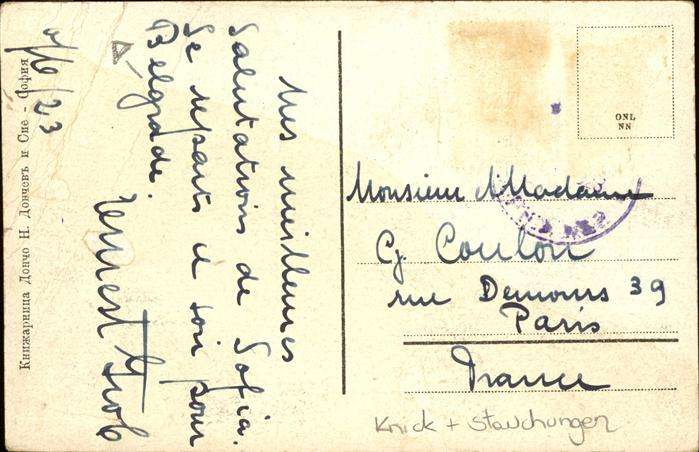 Mes meilleures
Salutations de Sofia.
Je repars ce soir pour
Belgrade.
Ernest
5/6/23
Книжарница Дончо Н. Дончевъ и Сие - София
ONL
NN
Monsieur & Madame
G. Coulon
rue Demours 39
Paris
France
Knick + Stauchungen